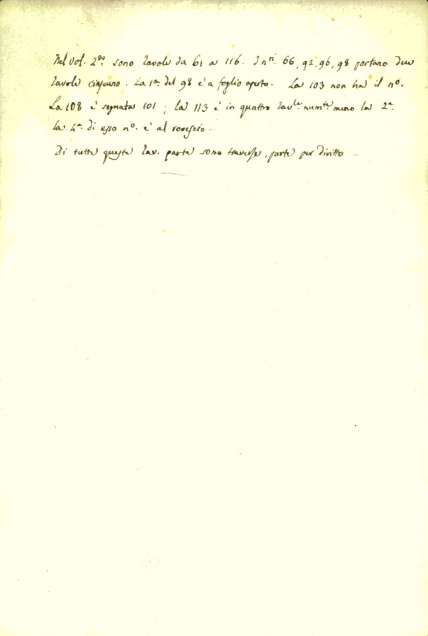 Nel Vol. 2º sono tavole da 61 a 116. I nri 66, 92, 96, 98 portano due
tavole ciascuno. La 1a del 98 è a foglio aperto. La 103 non ha il nº.
La 108 è segnata 101; la 113 è in quattro tavle numte meno la 2a.
La 4a di esso nº è al rovescio.
Di tutte queste tav. parte sono traverse, parte per diritto.